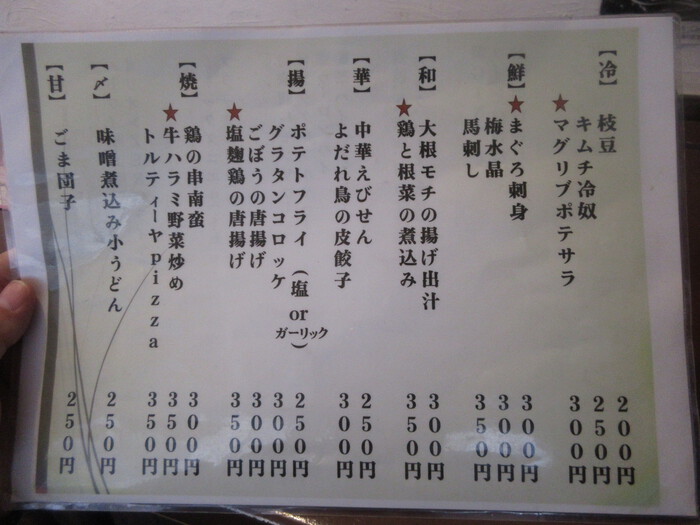 【冷】
枝豆 200円
キムチ冷奴 250円
★マグリブポテサラ 300円
【鮮】
★まぐろ刺身 300円
梅水晶 300円
馬刺し 350円
【和】
大根モチの揚げ出汁 300円
★鶏と根菜の煮込み 350円
【華】
中華えびせん 250円
よだれ鳥の皮餃子 300円
【揚】
ポテトフライ（塩orガーリック） 250円
グラタンコロッケ 300円
ごぼうの唐揚げ 300円
★塩麹鶏の唐揚げ 350円
【焼】
鶏の串南蛮 300円
★牛ハラミ野菜炒め 350円
トルティーヤpizza 350円
【〆】
味噌煮込み小うどん 250円
【甘】
ごま団子 250円